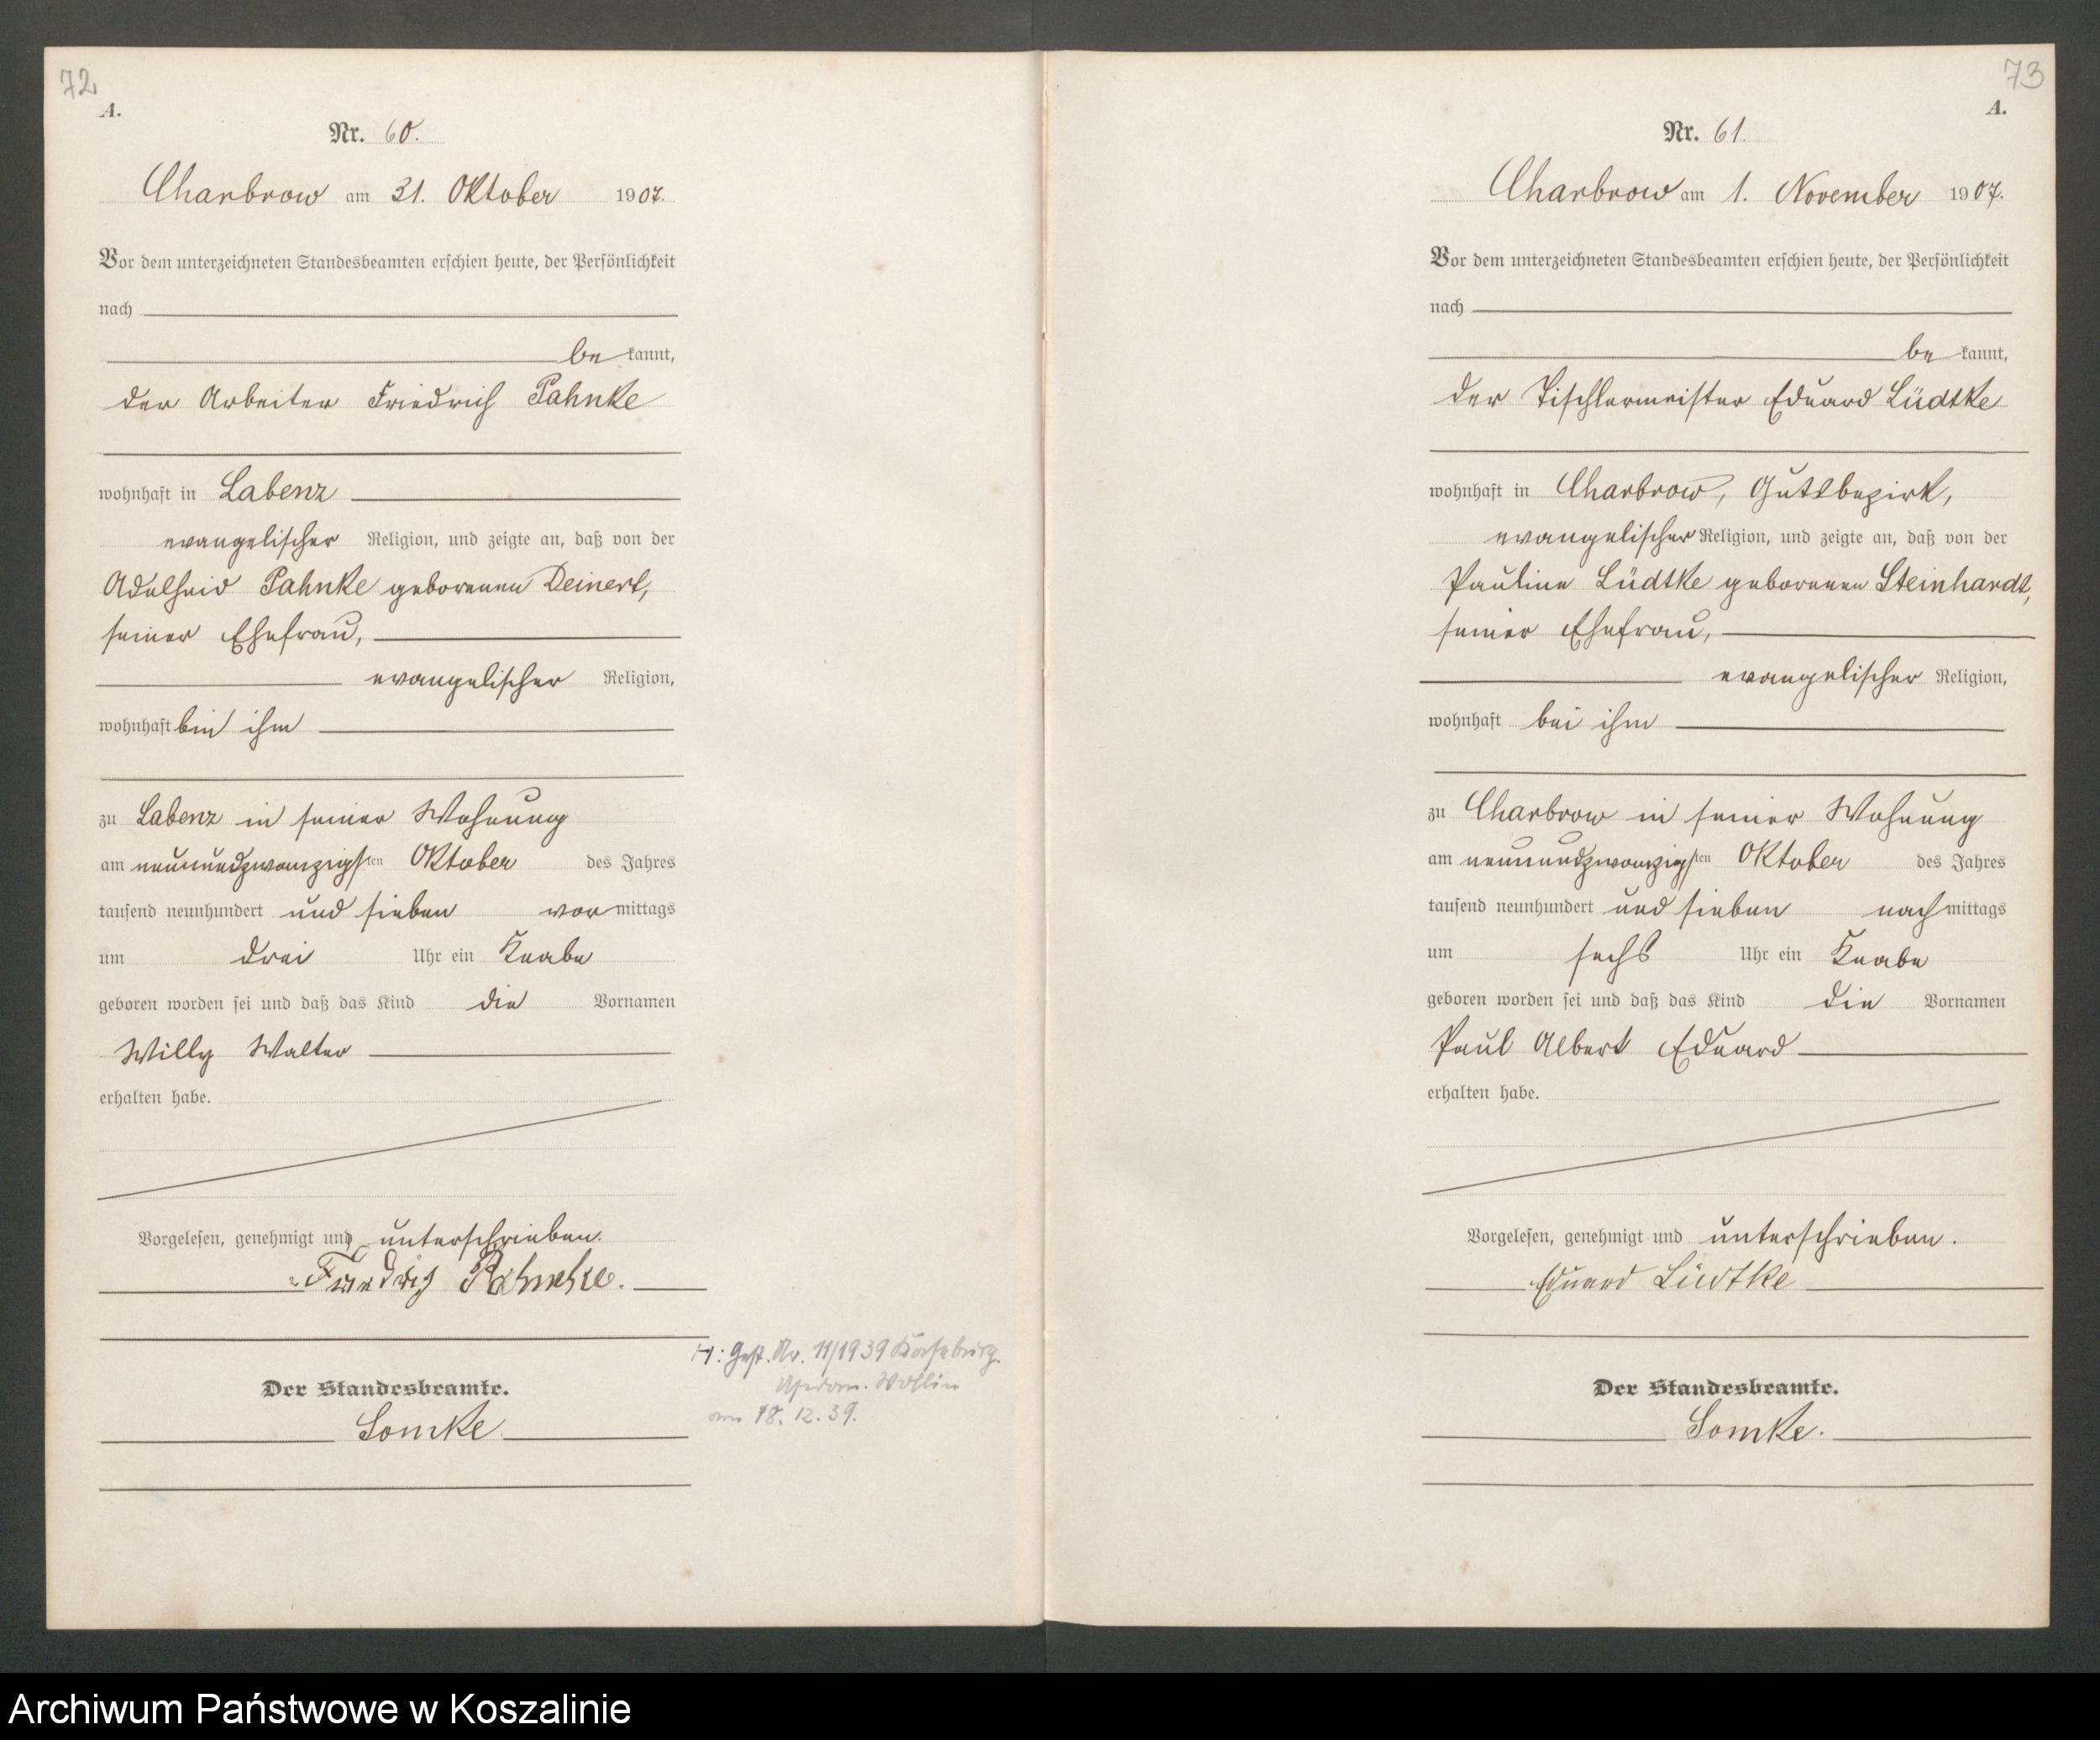 72
A.
Nr. 60.
Charbrow am 31. Oktober 1907.
Vor dem unterzeichneten Standesbeamten erschien heute, der Persönlichkeit
nach
be kannt,
der Arbeiter Friedrich Pahnke
wohnhaft in Labenz
evangelischer Religion, und zeigte an, daß von der
Adelheid Pahnke geborenen Deinert,
seiner Ehefrau,
evangelischer Religion,
wohnhaft bei ihm
zu Labenz in seiner Wohnung
am neunundzwanzigsten Oktober des Jahres
tausend neunhundert und sieben vormittags
um drei Uhr ein Knabe
geboren worden sei und daß das Kind die Vornamen
Willy Walter
erhalten habe.
Vorgelesen, genehmigt und unterschrieben.
Friedrich Pahnke.
H: Gest. Nr. 11/1939
Usedom-Wollin
am 18.12.39.
Der Standesbeamte.
Somke
73
A.
Nr. 61.
Charbrow am 1. November 1907.
Vor dem unterzeichneten Standesbeamten erschien heute, der Persönlichkeit
nach
be kannt,
der Tischlermeister Eduard Lüdtke
wohnhaft in Charbrow, Gutsbezirk,
evangelischer Religion, und zeigte an, daß von der
Pauline Lüdtke geborenen Steinhardt,
seiner Ehefrau,
evangelischer Religion,
wohnhaft bei ihm
zu Charbrow in seiner Wohnung
am neunundzwanzigsten Oktober des Jahres
tausend neunhundert und sieben nachmittags
um sechs Uhr ein Knabe
geboren worden sei und daß das Kind die Vornamen
Paul Albert Eduard
erhalten habe.
Vorgelesen, genehmigt und unterschrieben.
Eduard Lüdtke
Der Standesbeamte.
Somke.
Archiwum Państwowe w Koszalinie